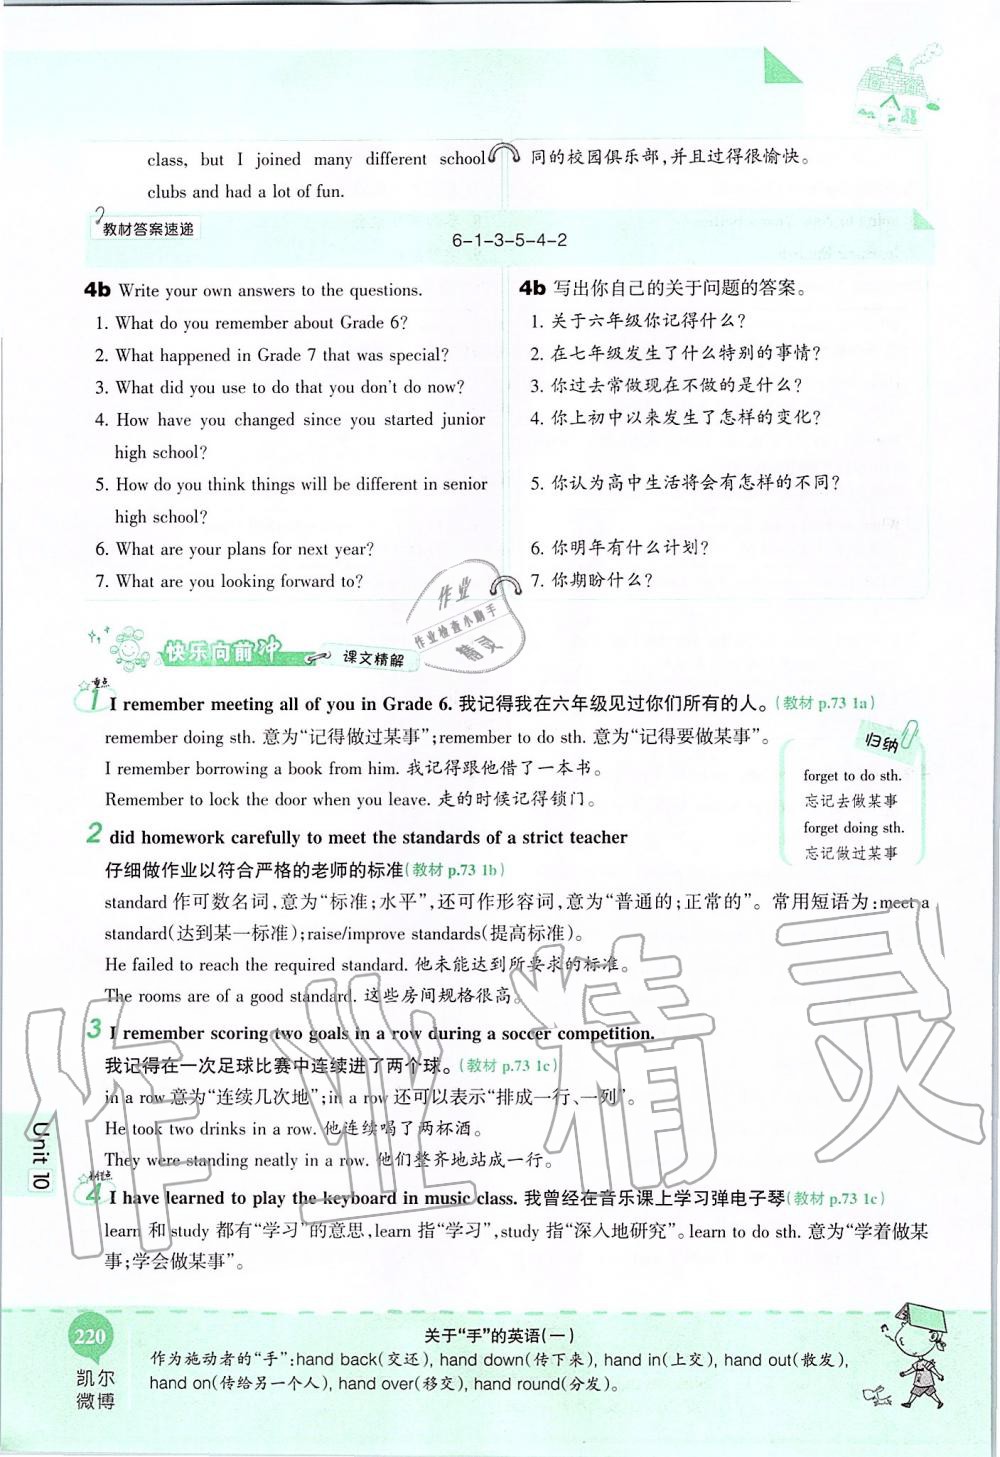 class, but I joined many different school
clubs and had a lot of fun.
同的校园俱乐部,并且过得很愉快。
教材答案速递
6-1-3-5-4-2
4b Write your own answers to the questions.
1. What do you remember about Grade 6?
2. What happened in Grade 7 that was special?
3. What did you use to do that you don't do now?
4. How have you changed since you started junior
high school?
5. How do you think things will be different in senior
high school?
6. What are your plans for next year?
7. What are you looking forward to?
4b 写出你自己的关于问题的答案。
1. 关于六年级你记得什么?
2. 在七年级发生了什么特别的事情?
3. 你过去常做现在不做的是什么?
4. 你上初中以来发生了怎样的变化?
5. 你认为高中生活将会有怎样的不同?
6. 你明年有什么计划?
7. 你期盼什么?
作业
作业检查小助手
精灵
快乐向前冲
课文精解
重点
1 I remember meeting all of you in Grade 6. 我记得我在六年级见过你们所有的人。(教材 p.73 1a)
remember doing sth. 意为“记得做过某事”;remember to do sth. 意为“记得要做某事”。
I remember borrowing a book from him. 我记得跟他借了一本书。
Remember to lock the door when you leave. 走的时候记得锁门。
归纳
forget to do sth.
忘记去做某事
forget doing sth.
忘记做过某事
2 did homework carefully to meet the standards of a strict teacher
仔细做作业以符合严格的老师的标准(教材 p.73 1b)
standard 作可数名词,意为“标准;水平”,还可作形容词,意为“普通的;正常的”。常用短语为:meet a
standard(达到某一标准);raise/improve standards(提高标准)。
He failed to reach the required standard. 他未能达到所要求的标准。
The rooms are of a good standard. 这些房间规格很高。
3 I remember scoring two goals in a row during a soccer competition.
我记得在一次足球比赛中连续进了两个球。(教材 p.73 1c)
in a row 意为“连续几次地”;in a row 还可以表示“排成一行、一列”。
He took two drinks in a row. 他连续喝了两杯酒。
They were standing neatly in a row. 他们整齐地站成一行。
4 I have learned to play the keyboard in music class. 我曾经在音乐课上学习弹电子琴(教材 p.73 1c)
learn 和 study 都有“学习”的意思,learn 指“学习”,study 指“深入地研究”。learn to do sth. 意为“学着做某
事;学会做某事”。
作业精灵
Unit 10
220
凯尔
微博
关于“手”的英语(一)
作为施动者的“手”:hand back(交还), hand down(传下来), hand in(上交), hand out(散发),
hand on(传给另一个人), hand over(移交), hand round(分发)。